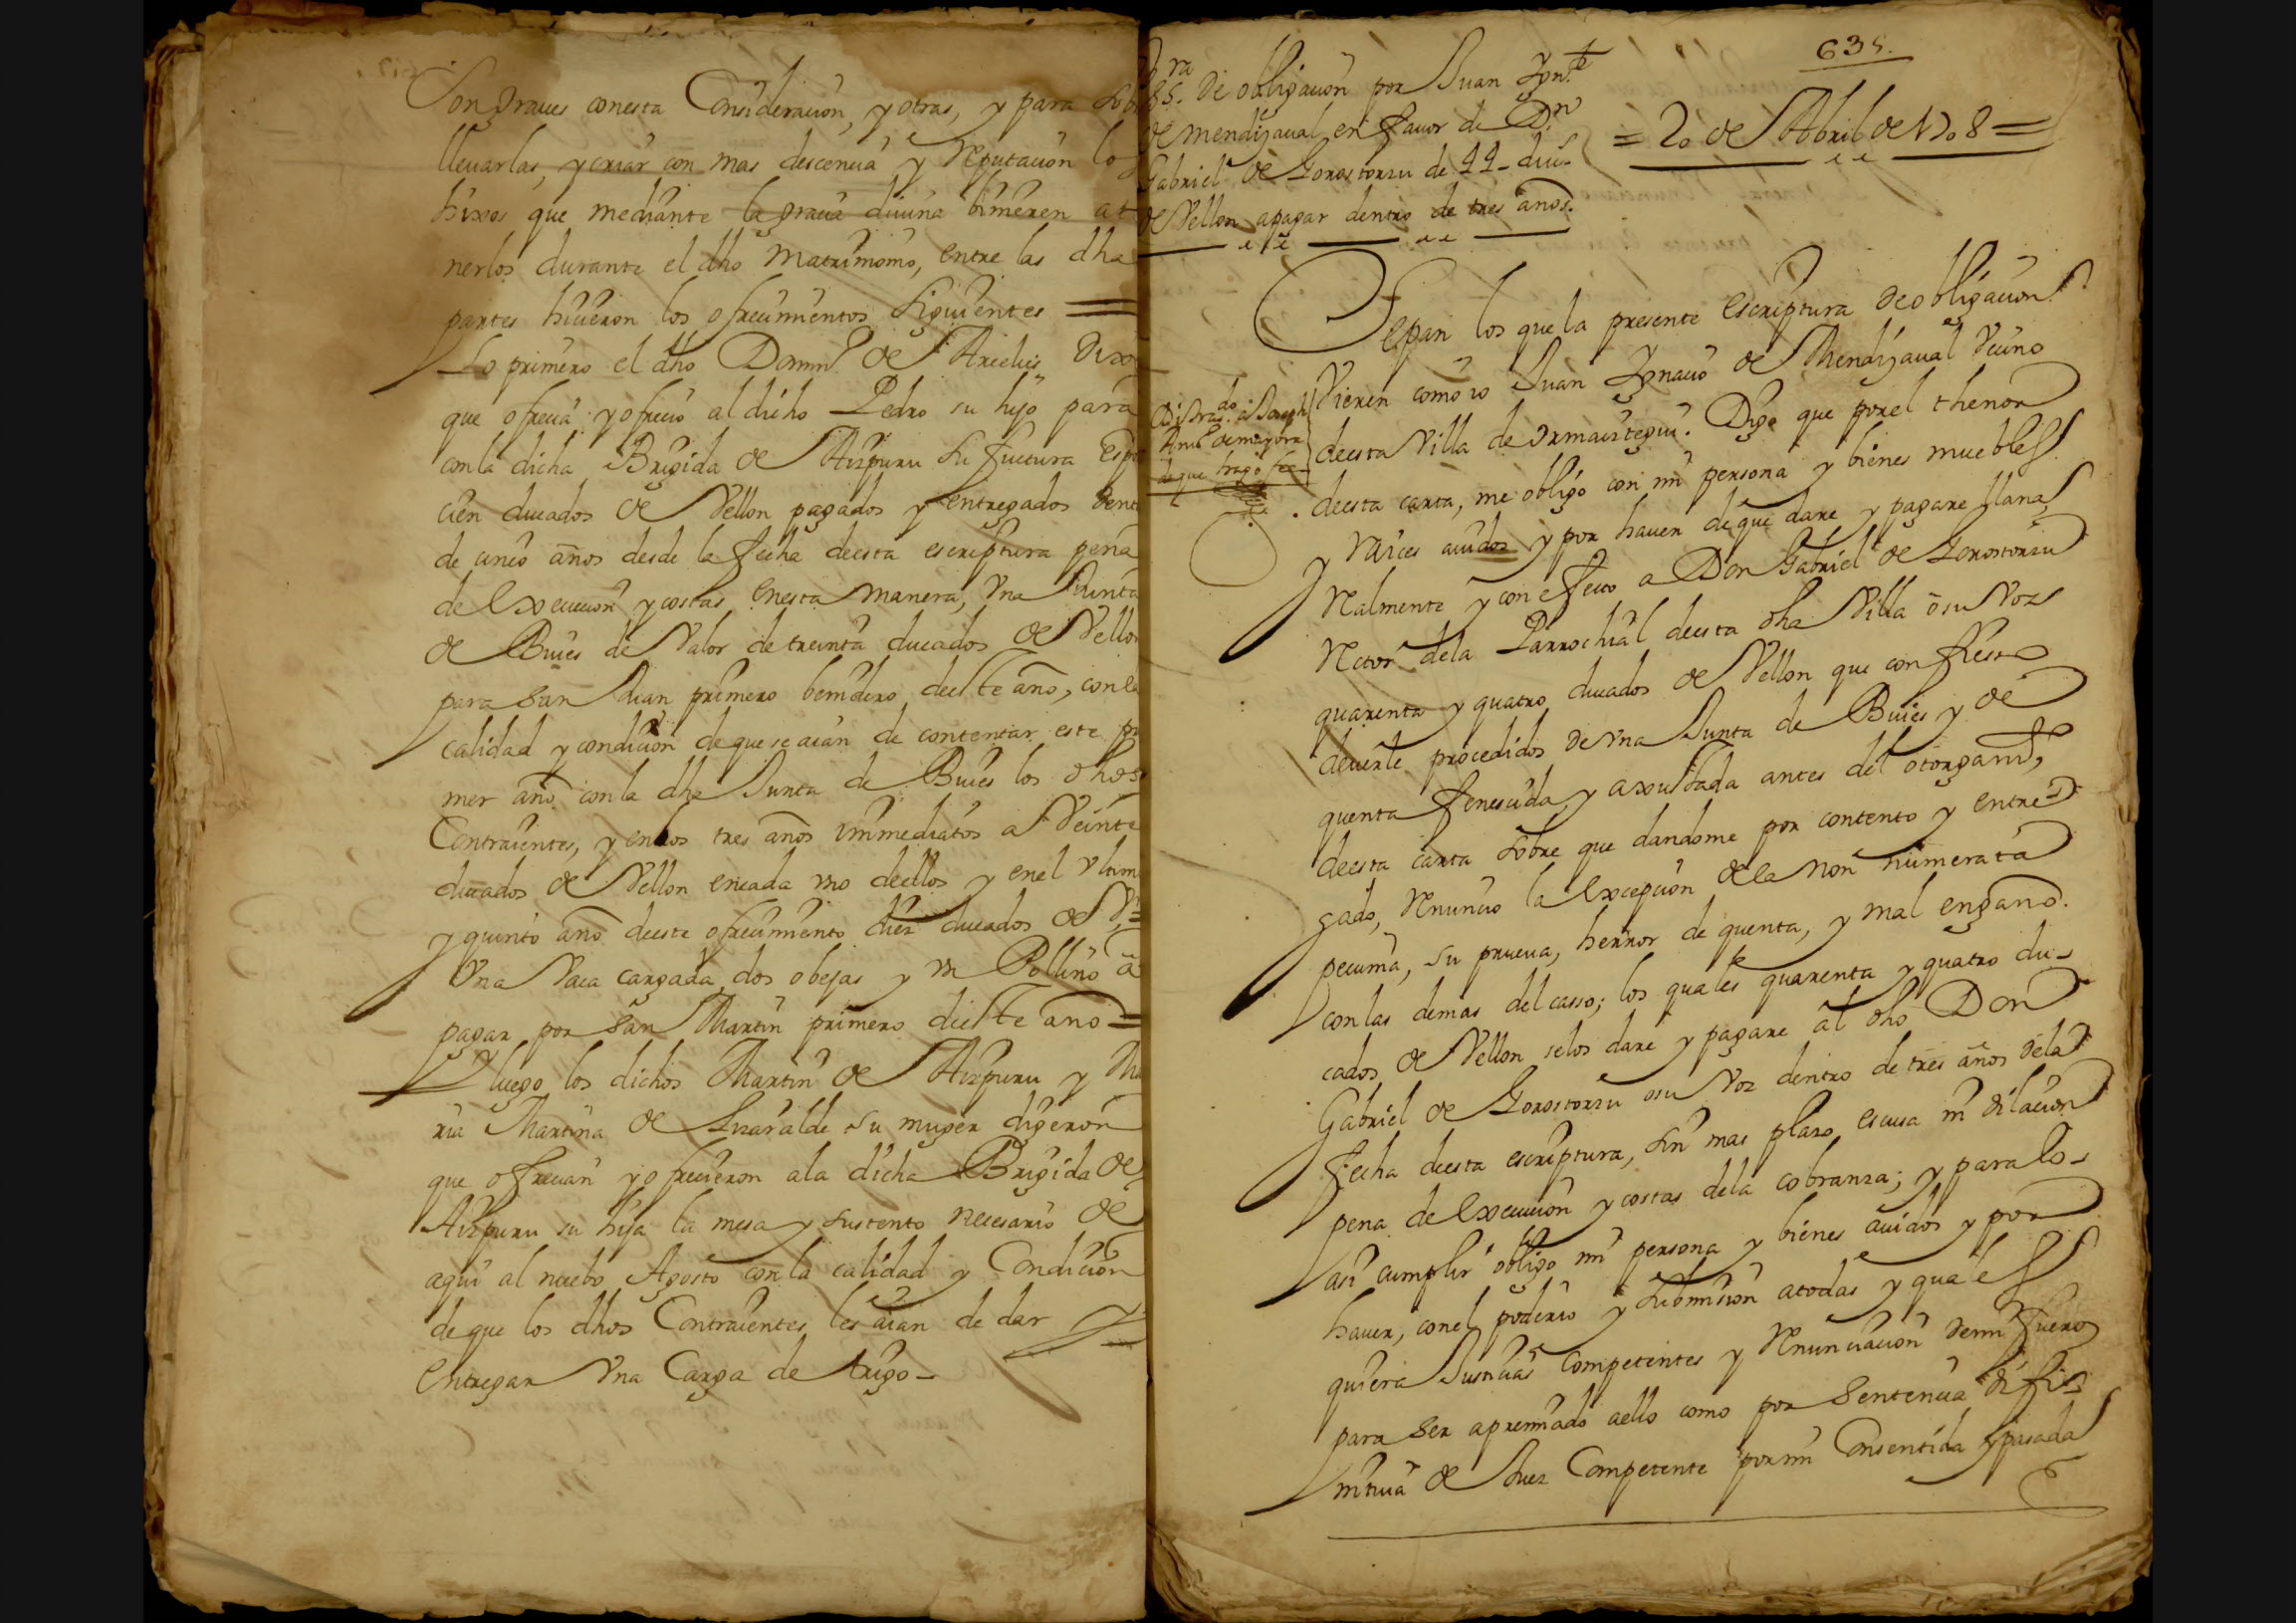 Son graues conesta Consideracion, y otras, y para sob
lleuarlas, y criar con mas descencia y Reputacion lo
hixos que mediante la gracia diuina binieren a t
nerlos durante el dho Matrimonio, entre las dha
partes hicieron los ofrecimientos siguientes =
Lo primero el dho Domin.º de Arcelus, Dixo
que ofrecia y ofrecio al dicho Pedro su hijo para
con la dicha Brigida de Aizpuru su fuctura Espo
cien ducados de Vellon pagados y entregados dent
de cinco años desde la fecha deesta escriptura pena
de Execucion y costas enesta manera, Vna Iunta
de Buies de Valor de treinta ducados de Vellon
para san Iuan primero benidero deeste año, con la
calidad y condicion de que se aian de contentar este pri
mer año con la dha Iunta de Buies los dhos
Contraientes, y en los tres años immediatos a Veinte
ducados de Vellon en cada vno deellos y en el Vltim
y quinto año deeste ofrecimiento diez ducados de V.n
Vna Vaca cargada, dos obejas y vn Pollino a
pagar por san Martin primero deeste año =
Y luego los dichos Martin de Aizpuru y Ma
ria Martina de Lizaralde su muger digeron
que ofrecian y ofrecieron a la dicha Brigida de
Aizpuru su hija la mesa y sustento necesario de
aqui al nuebo Agosto con la calidad y Condicion
de que los dhos Contraientes les aian de dar y
Entregar Vna Carga de trigo -
635.
de obligacion por Iuan Ign.º
de Mendizaual en fauor de D.n
Gabriel de Gorostorzu de 44 - duc.s
de Vellon a pagar dentro de tres años.
= 20 de Abril de 1708 =
Sepan los que la presente escriptura de obligacion
Vieren como io Iuan Ignacio de Mendizaual Vecino
deesta Villa de Ormaiztegui. Digo que por el thenor
deesta carta, me obligo con mi persona y bienes muebles
y Raices auidos y por hauer de que dare y pagare llana
Realmente y con efecto a Don Gabriel de Gorostorzu
Rector de la Parrochial deesta dha Villa o su Voz
quarenta y quatro ducados de Vellon que confieso
deuerle procedidos de vna Iunta de Buies y de
quenta fenescida y axustada antes del otorgam.to
deesta carta sobre que dandome por contento y entre
gado, Renuncio la Excepcion de la non numerata
pecunia, su prueua, herror de quenta, y mal engaño.
con las demas del casso; los quales quarenta y quatro du-
cados de Vellon se los dare y pagare al dho Don
Gabriel de Gorostorzu o su Voz dentro de tres años de la
fecha deesta escriptura, sin mas plazo escusa ni dilacion
pena de Execucion y costas de la cobranza; y para lo-
asi cumplir obligo mi persona y bienes auidos y por
hauer, con el poderio y submision a todas y quales
quiera Iusticias Competentes y Renunciacion de mi fuero
para ser apremiado a ello como por Sentencia difi-
nitiua de Iuez Competente por mi Consentida y pasada